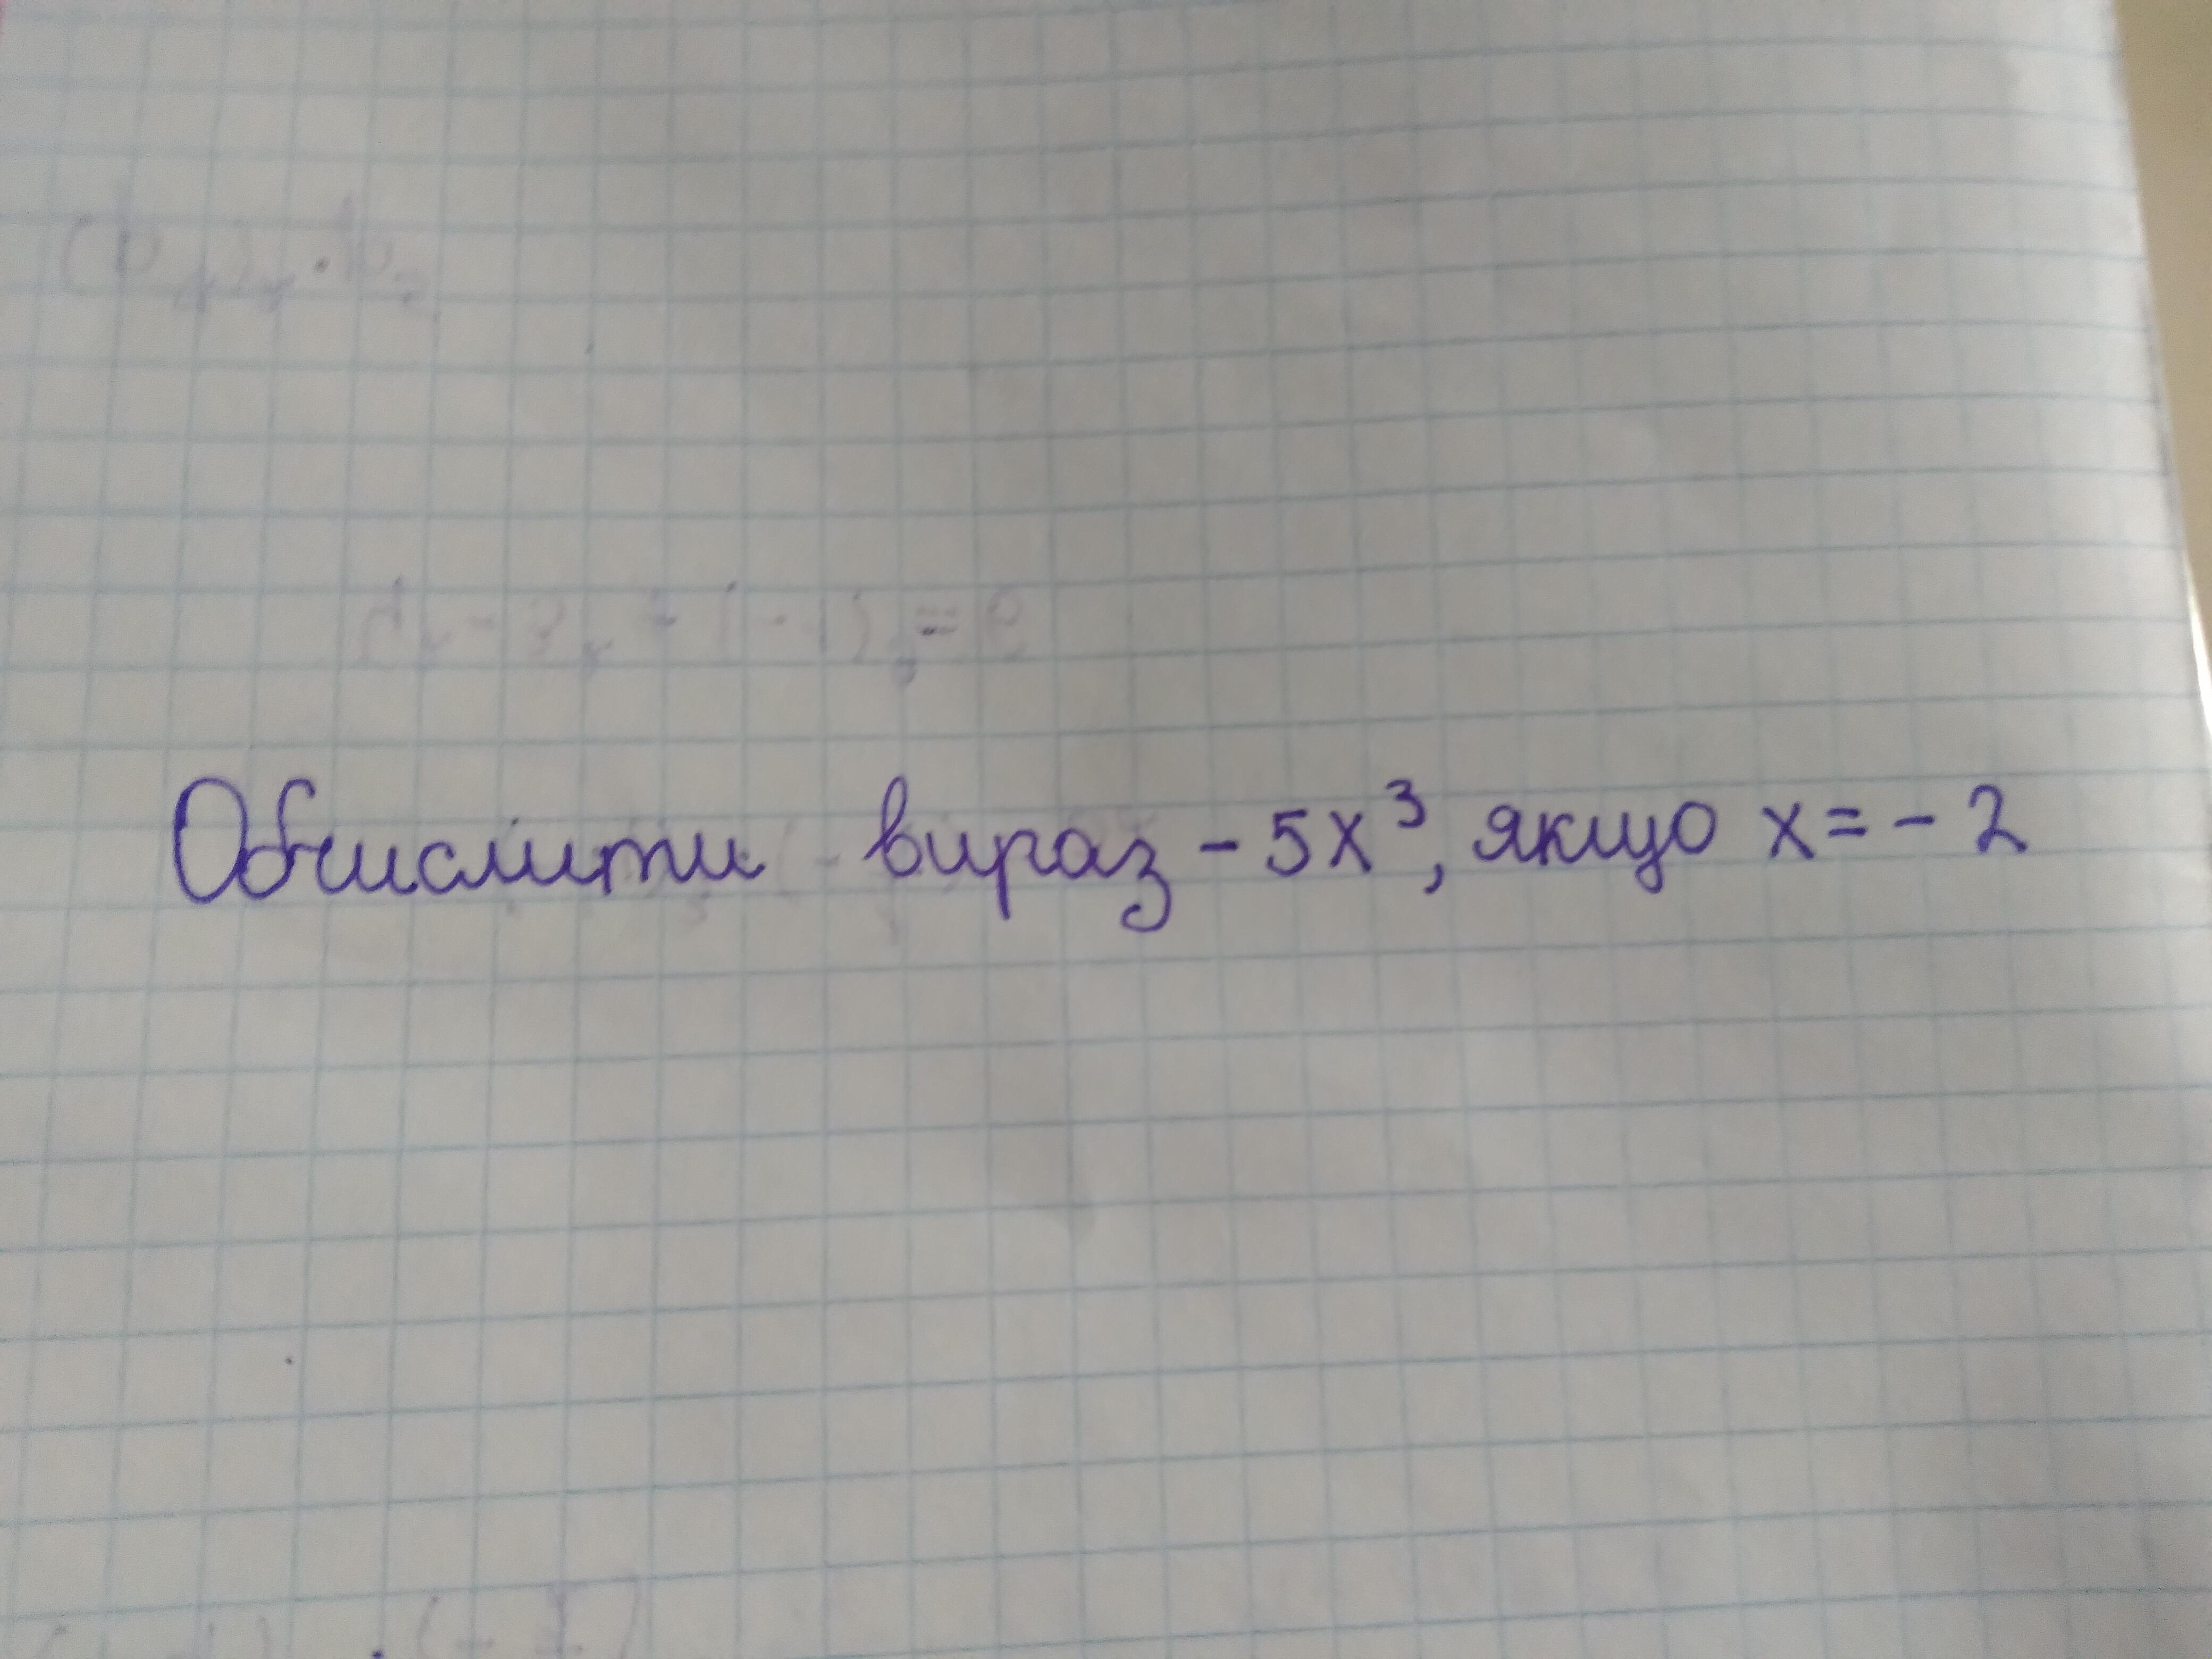 Обчислити вираз - 5x³, якщо x = - 2